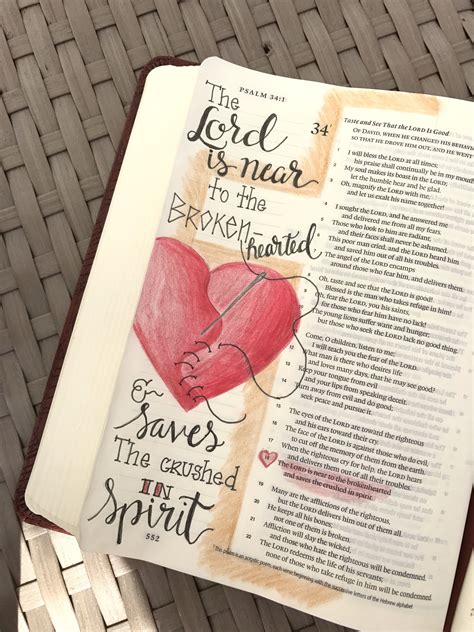 PSALM 34:1
The
Lord
is near
to the
BROKEN-
hearted
&
Saves
The crushed
IN
Spirit
552
34
Taste and See That the LORD Is Good
OF DAVID, WHEN HE CHANGED HIS BEHAVIO
SO THAT HE DROVE HIM OUT, AND HE WENT
1 I will bless the LORD at all times;
his praise shall continually be in my mouth
2 My soul makes its boast in the LORD;
let the humble hear and be glad.
3 Oh, magnify the LORD with me,
and let us exalt his name together!
4 I sought the LORD, and he answered me
and delivered me from all my fears.
5 Those who look to him are radiant,
and their faces shall never be ashamed.
6 This poor man cried, and the LORD heard him
and saved him out of all his troubles.
7 The angel of the LORD encamps
around those who fear him, and delivers them.
8 Oh, taste and see that the LORD is good!
Blessed is the man who takes refuge in him!
9 Oh, fear the LORD, you his saints,
for those who fear him have no lack!
10 The young lions suffer want and hunger;
but those who seek the LORD lack no good thing.
11 Come, O children, listen to me;
I will teach you the fear of the LORD.
12 What man is there who desires life
and loves many days, that he may see good?
13 Keep your tongue from evil
and your lips from speaking deceit.
14 Turn away from evil and do good;
seek peace and pursue it.
15 The eyes of the LORD are toward the righteous
and his ears toward their cry.
16 The face of the LORD is against those who do evil,
17 When the righteous cry for help, the LORD hears
and delivers them out of all their troubles.
18 The LORD is near to the brokenhearted
and saves the crushed in spirit.
19 Many are the afflictions of the righteous,
but the LORD delivers him out of them all.
20 He keeps all his bones;
not one of them is broken.
21 Affliction will slay the wicked,
and those who hate the righteous will be condemned.
22 The LORD redeems the life of his servants;
none of those who take refuge in him will be condemned.
This psalm is an acrostic poem, each verse beginning with the successive letters of the Hebrew alphabet